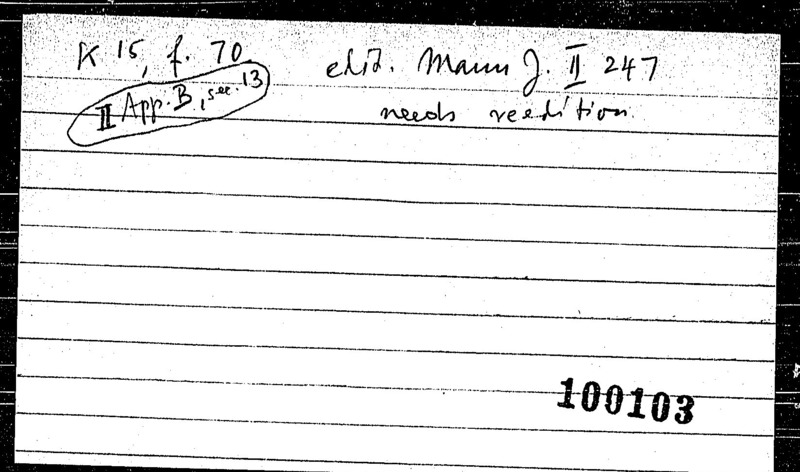 K 15, f. 70
II App. B, sec. 13
edid. Mann J. II 247
needs reedition.
100103